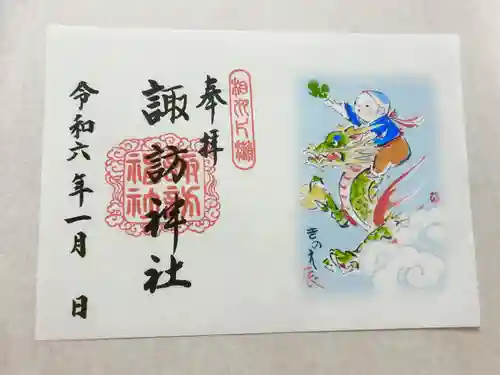 きのえ辰
相州片瀬
奉拝
諏訪神社
諏訪
神社
令和六年一月 日